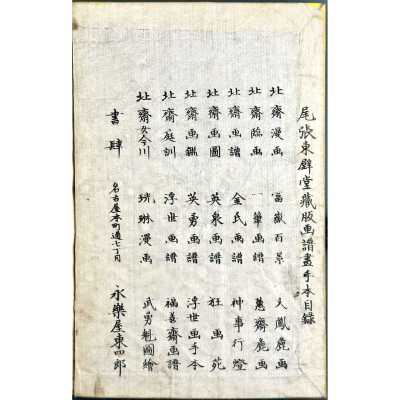 尾張東壁堂藏版画譜畫手本目録
北齋漫画 富嶽百景 大鳳麁画
北齋臨画 一筆画譜 蕙齋麁画
北齋画譜 金氏画譜 神事行燈
北齋画圖 英泉画譜 狂画苑
北齋画鑑 英勇画譜 浮世画手本
北齋庭訓 浮世画譜 福善齋画譜
北齋女今川 琳漫画 武勇魁圖繪
書肆 名古屋本町通七丁目 永樂屋東四郎